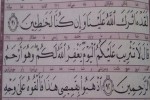 لَقَدْ اٰثَرَكَ اللّٰهُ عَلَيْنَا وَاِنْ كُنَّا لَخٰطِـِٕيْنَ ٩١
قَالَ لَا تَثْرِيْبَ عَلَيْكُمُ الْيَوْمَ يَغْفِرُ اللّٰهُ لَكُمْ وَهُوَ اَرْحَمُ
الرّٰحِمِيْنَ ٩٢ اِذْهَبُوْا بِقَمِيْصِيْ هٰذَا فَاَلْقُوْهُ عَلٰى وَجْهِ